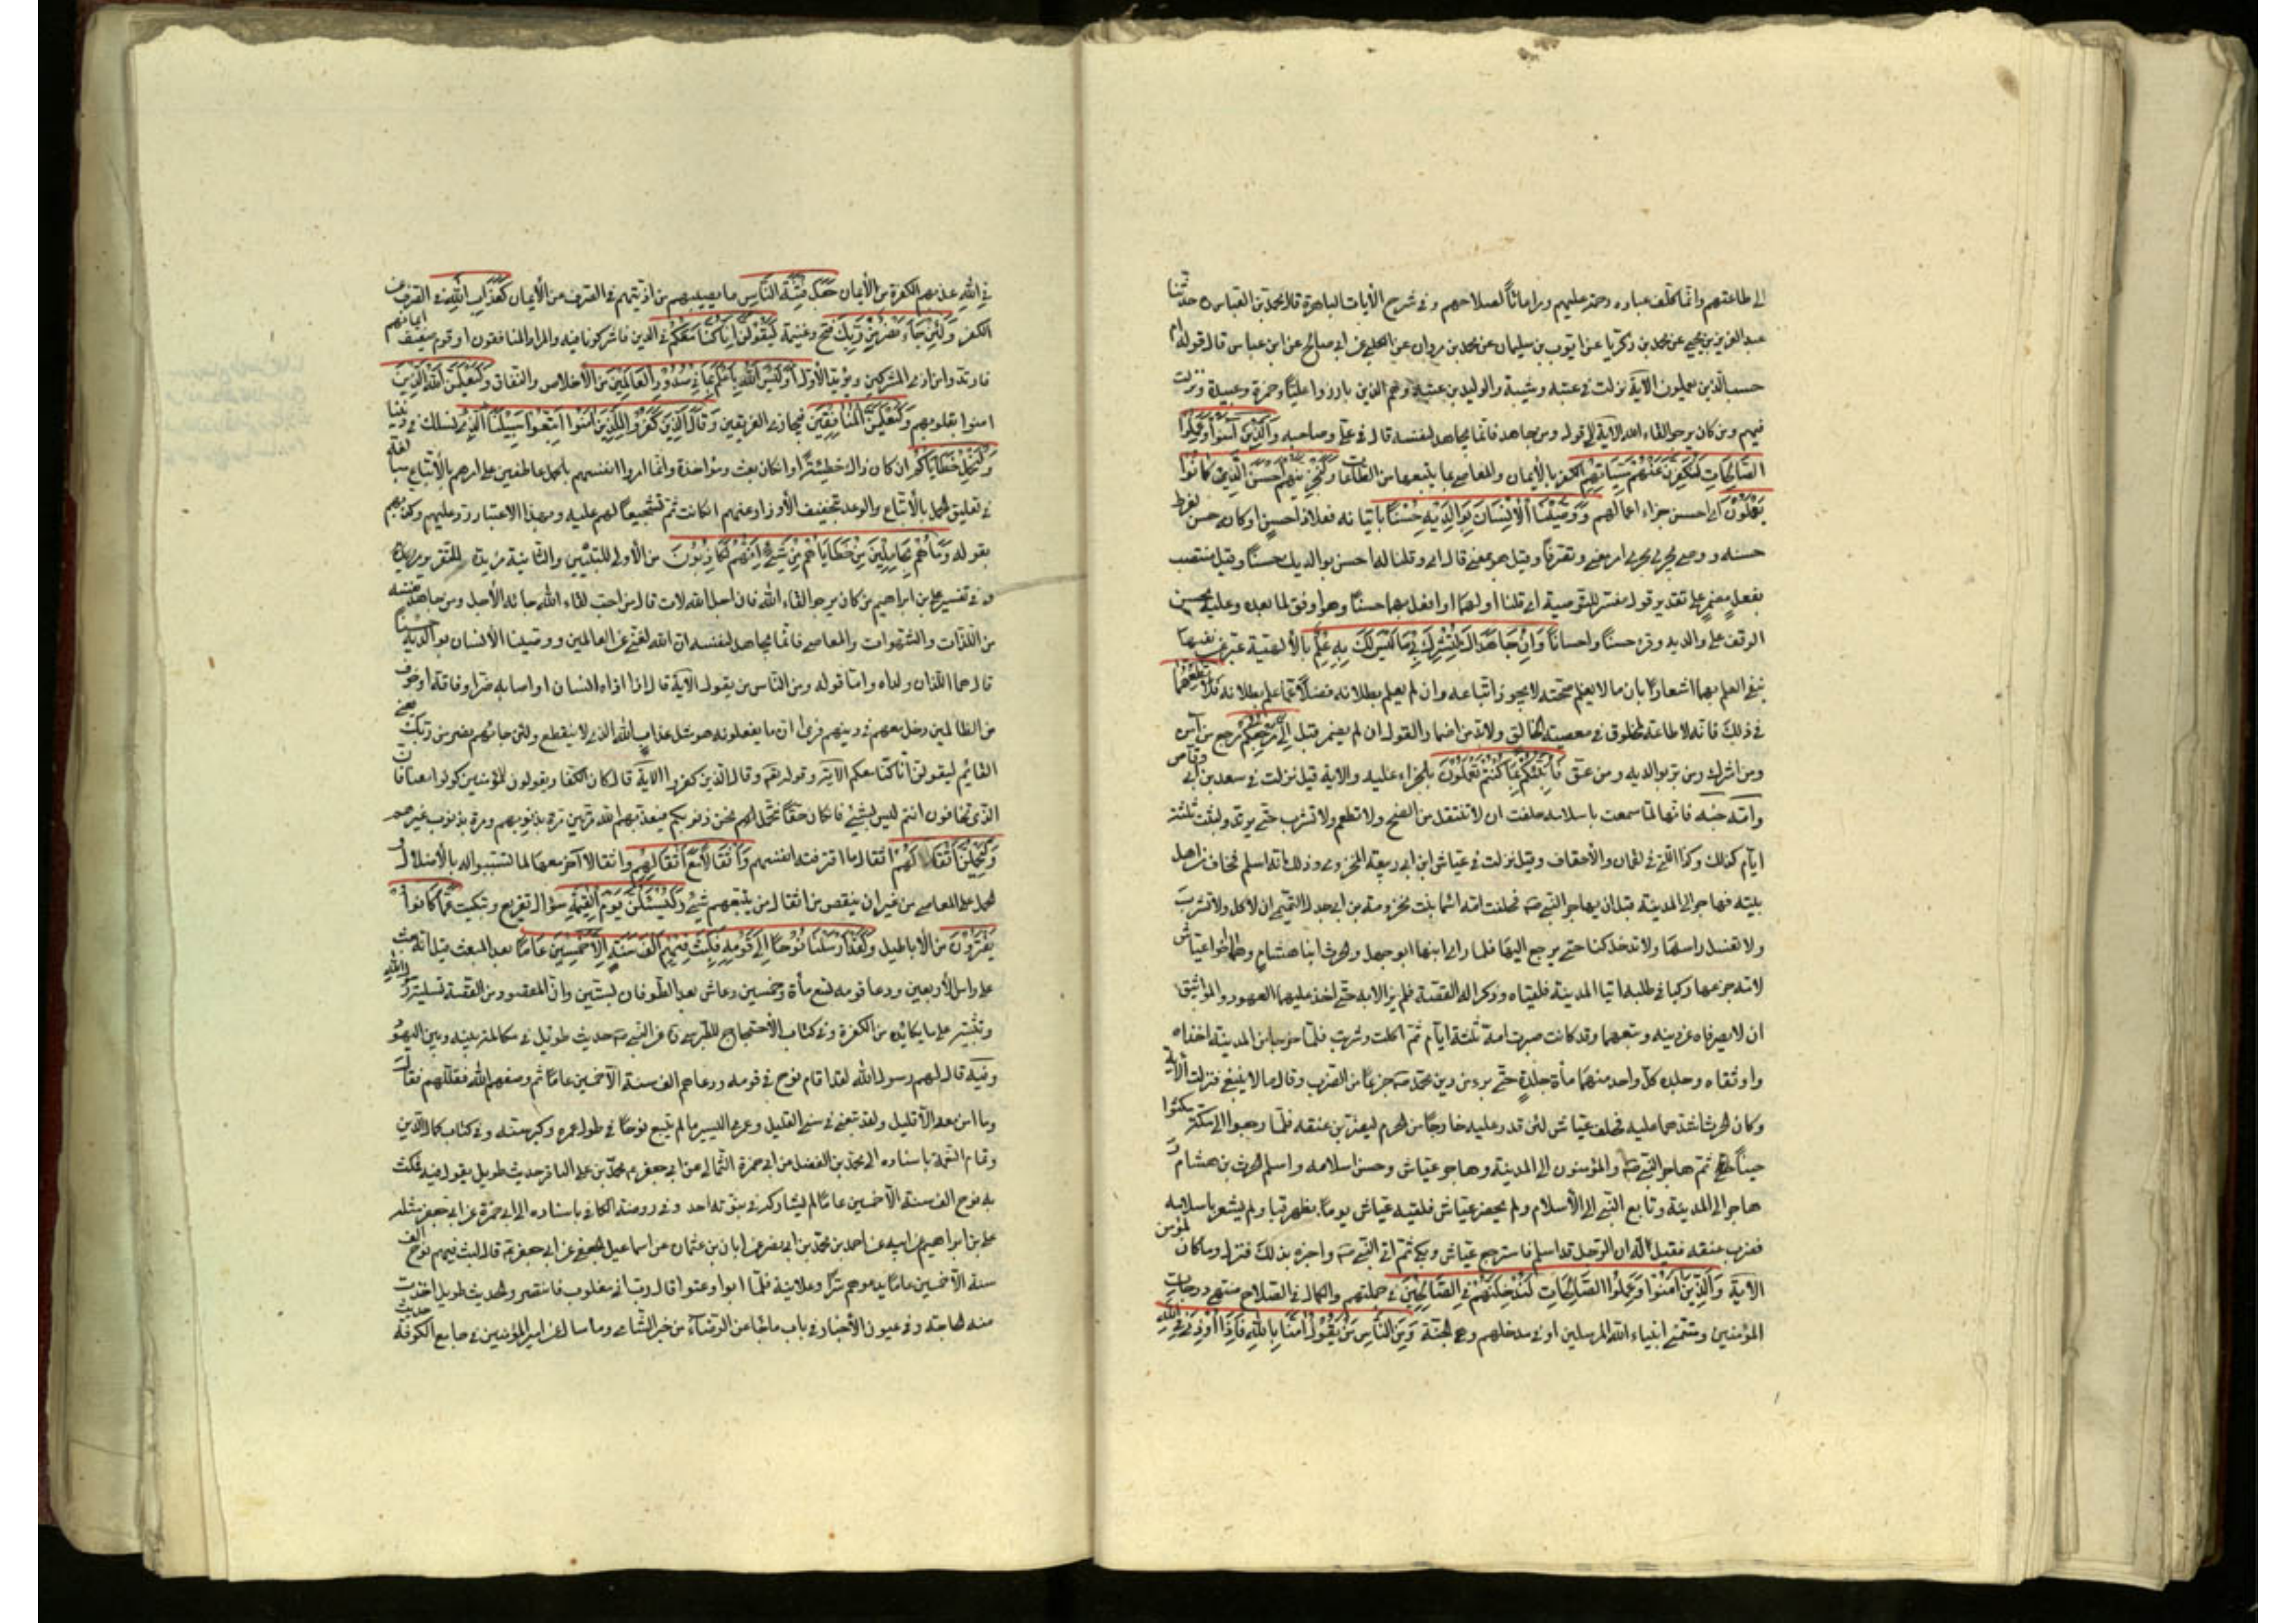 الى طاعتهم وانما كلف عباده رحمة عليهم ومراعاتاً لصلاحهم وفي شرح الآيات الباهرة قال محمد بن العباس حدثنا
عبد العزيز بن يحيى عن محمد بن زكريا عن ايوب بن سليمان عن محمد بن مروان عن الكلبي عن ابي صالح عن ابن عباس قال قوله ام
حسب الذين يعملون الآية نزلت في عتبه وشيبة والوليد بن عتبه وهم الذين بارزوا علياً وحمزة وعبيدة ونزلت
فيهم ومن كان يرجو لقاء الله الآية الى قوله ومن جاهد فانما يجاهد لنفسه قال في علي وصاحبيه وَالَّذِينَ آمَنُوا وَعَمِلُوا
الصَّالِحَاتِ لَنُكَفِّرَنَّ عَنْهُمْ سَيِّئَاتِهِمْ الكفر بالأيمان والمعاصي بما يتبعها من الطاعات وَلَنَجْزِيَنَّهُمْ أَحْسَنَ الَّذِي كَانُوا
يَعْمَلُونَ اي احسن جزاء اعمالهم وَوَصَّيْنَا الْأِنْسَانَ بِوَالِدَيْهِ حُسْنًا باتيانه فعلاً ذا حسن او كانه حسن لفرط
حسنه ووصى يجري مجرى امر معنى وتصرفاً وقيل هو بمعنى قال اي وقلنا له احسن بوالديك حسناً وقيل منتصب
بفعل مضمر على تقدير قول مفسر للتوصية اي قلنا اولهما او افعل بهما حسناً وهو اوفق لما بعده وعليه يحسن
الوقف على والديه وقرء حسناً واحساناً وَاِنْ جَاهَدَاكَ لِتُشْرِكَ بِي مَا لَيْسَ لَكَ بِهِ عِلْمٌ بالألهية عبر عن نفيها
بنفي العلم بها اشعاراً بان ما لا يعلم صحته لا يجوز اتباعه وان لم يعلم بطلانه فضلاً عما علم بطلانه فَلَا تُطِعْهُمَا
في ذلك فانه لا طاعة لمخلوق في معصية الخالق ولا بد من اضمار القول ان لم يضمر قبل اِلَيَّ مَرْجِعُكُمْ مرجع من آمن
ومن اشرك ومن بر بوالديه ومن عق فَأُنَبِّئُكُمْ بِمَا كُنْتُمْ تَعْمَلُونَ بالجزاء عليه والاية قيل نزلت في سعد بن ابي وقاص
وامه حمنه فانها لما سمعت باسلامه حلفت ان لا تنتقل من الضح ولا تطعم ولا تشرب حتى يرتد ولبثت ثلثة
ايام كذلك وكذا التي في لقمان والأحقاف وقيل نزلت في عياش ابن ابي ربيعة المخزومي وذلك انه اسلم فخاف من اهل
بيته فهاجر الى المدينة قبل ان يهاجر النبي ص فحلفت امه اسما بنت مخزمة بن ابي جندل التميمي ان لا تأكل ولا تشرب
ولا تغسل راسها ولا تدخل كنا حتى يرجع اليها فلما راى ابنها ابو جهل والحرث ابنا هشام وهما اخوا عياش
لامه جزعها ركبا في طلبه اتيا المدينة فلقياه وذكرا له القصة فلم يزالا به حتى اخذ عليهما العهود والمواثيق
ان لا يصرفاه عن دينه وتبعهما وقد كانت صبرت امه ثلثة ايام ثم اكلت وشربت فلما خرجا من المدينة اخذاه
واوثقاه وجلده كل واحد منهما مأة جلدة حتى برء من دين محمد ص جزعاً من الضرب وقال ما لا ينبغي فنزلت الآية
وكان الحرث اشدهما عليه فحلف عياش لئن قدر عليه خارجاً من الحرم ليضربن عنقه فلما رجعوا الى مكة مكثوا
حيناً ثم هاجر النبي ص والمؤمنون الى المدينة وهاجر عياش وحسن اسلامه واسلم الحرث بن هشام و
هاجر الى المدينة وتابع النبي الى الأسلام ولم يحضر عياش فلقيه عياش يوماً بظهر قبا ولم يشعر باسلامه
فضرب عنقه فقيل له ان الرجل قد اسلم فاسترجع عياش وبكى ثم اتى النبي ص واخبره بذلك فنزل وما كان لمؤمن
الآية وَالَّذِينَ آمَنُوا وَعَمِلُوا الصَّالِحَاتِ لَنُدْخِلَنَّهُمْ فِي الصَّالِحِينَ في جملتهم والكمال في الصلاح منتهى درجات
المؤمنين ومتمنى انبياء الله المرسلين او في مدخلهم وهي الجنة وَمِنَ النَّاسِ مَنْ يَقُولُ آمَنَّا بِاللهِ فَاِذَا اُوذِيَ فِي اللهِ
في اللهِ عذبهم الكفرة عن الأيمان جَعَلَ فِتْنَةَ النَّاسِ ما يصيبهم من اذيتهم في الصرف عن الأيمان كَعَذَابِ اللهِ في الصرف عن
الكفر وَلَئِنْ جَاءَ نَصْرٌ مِنْ رَبِّكَ فتح وغنيمة لَيَقُولُنَّ اِنَّا كُنَّا مَعَكُمْ في الدين فاشركونا فيه والمراد المنافقون او قوم ضعف ايمانهم
فارتدوا من اذى المشركين ويؤيد الأول اَوَلَيْسَ اللهُ بِاَعْلَمَ بِمَا فِي صُدُورِ الْعَالَمِينَ من الأخلاص والنفاق وَلَيَعْلَمَنَّ اللهُ الَّذِينَ
امنوا بقلوبهم وَلَيَعْلَمَنَّ الْمُنَافِقِينَ فيجازي الفريقين وَقَالَ الَّذِينَ كَفَرُوا لِلَّذِينَ آمَنُوا اتَّبِعُوا سَبِيلَنَا الذي نسلك في ديننا
وَلْنَحْمِلْ خَطَايَاكُمْ ان كان ذلك خطيئة او ان كان بعث ومؤاخذة وانما امروا انفسهم بالحمل عاطفين على امرهم بالأتباع مبالغة
في تعليق الحمل بالأتباع والوعد بتخفيف الأوزار عنهم انكانت ثم تشجيعاً لهم عليه وبهذا الاعتبار رد عليهم وكذبهم
بقوله وَمَا هُمْ بِحَامِلِينَ مِنْ خَطَايَاهُمْ مِنْ شَيْءٍ اِنَّهُمْ لَكَاذِبُونَ من الأولى للتبيين والثانية مزيدة
وفي تفسير علي بن ابراهيم من كان يرجو لقاء الله فان اجل الله لات قال من احب لقاء الله جائه الأجل ومن جاهد نفسه
من اللذات والشهوات والمعاصي فانما يجاهد لنفسه ان الله لغني عن العالمين ووصينا الأنسان بوالديه حسناً
قال هما اللذان ولداه واما قوله ومن الناس من يقول الآية قال اذا اذاه انسان او اصابه ضر او فاقة او خوف
من الظالمين دخل معهم في دينهم فرى ان ما يفعلونه هو مثل عذاب الله الذي لا ينقطع ولئن جائهم نصر من ربك يعني
القائم ليقولن انا كنا معكم الآية وقوله تعالى وقال الذين كفروا الاية قال كان الكفار يقولون للمؤمنين كونوا معنا فان
الذي تخافون انتم ليس بشيء فان كان حقاً نتحمل نحن ذنوبكم فيعذبهم الله مرتين مرة بذنوبهم ومرة بذنوب غيرهم
وَلَيَحْمِلُنَّ اَثْقَالَهُمْ اثقال ما اقترفته انفسهم وَاَثْقَالًا مَعَ اَثْقَالِهِمْ واثقالا آخر معها لما تسببوا له بالأضلال و
الحمل على المعاصي من غير ان ينقص من اثقال من يتبعهم شيء وَلَيُسْئَلُنَّ يَوْمَ الْقِيمَةِ سؤال تقريع وتبكيت عَمَّا كَانُوا
يَفْتَرُونَ من الأباطيل وَلَقَدْ اَرْسَلْنَا نُوحًا اِلَى قَوْمِهِ فَلَبِثَ فِيهِمْ اَلْفَ سَنَةٍ اِلَّا خَمْسِينَ عَامًا بعد المبعث قيل انه بعث
على راس الأربعين ودعا قومه تسع مأة وخمسين وعاش بعد الطوفان ستين وان المقصود من القصة تسلية رسول الله
وتثبيته على ما يكابده من الكفرة وفي كتاب الأحتجاج للطبرسي عن النبي ص حديث طويل في مكالمة بينه وبين اليهود
وفيه قال لهم رسول الله لقد اقام نوح في قومه ودعاهم الف سنة الا خمسين عاماً ثم وصفهم الله فقللهم فقال
وما امن معه الا قليل ولقد تبعني في سني القليل وعمري اليسير ما لم يتبع نوحاً في طول عمره وكبر سنه وفي كتاب كمال الدين
وتمام النعمة باسناده الى محمد بن الفضل عن ابي حمزة الثمالي عن ابي جعفر محمد بن علي الباقر حديث طويل يقول فيه فمكث
نوح الف سنة الا خمسين عاماً لم يشاركه في نبوته احد وفي روضة الكافي باسناده الى ابي حمزة عن ابي جعفر مثله
علي بن ابراهيم عن ابيه عن احمد بن محمد بن ابي نصر عن ابان بن عثمان عن اسماعيل الجعفي عن ابي جعفر قال لبث فيهم نوح الف
سنة الا خمسين عاماً يدعوهم سراً وعلانية فلما ابوا وعتوا قال رب اني مغلوب فانتصر والحديث طويل اخذت
منه الحاجة وفي عيون الأخبار في باب ما جاء عن الرضا من خبر الشامي وما سال عن امير المؤمنين في جامع الكوفة حديث